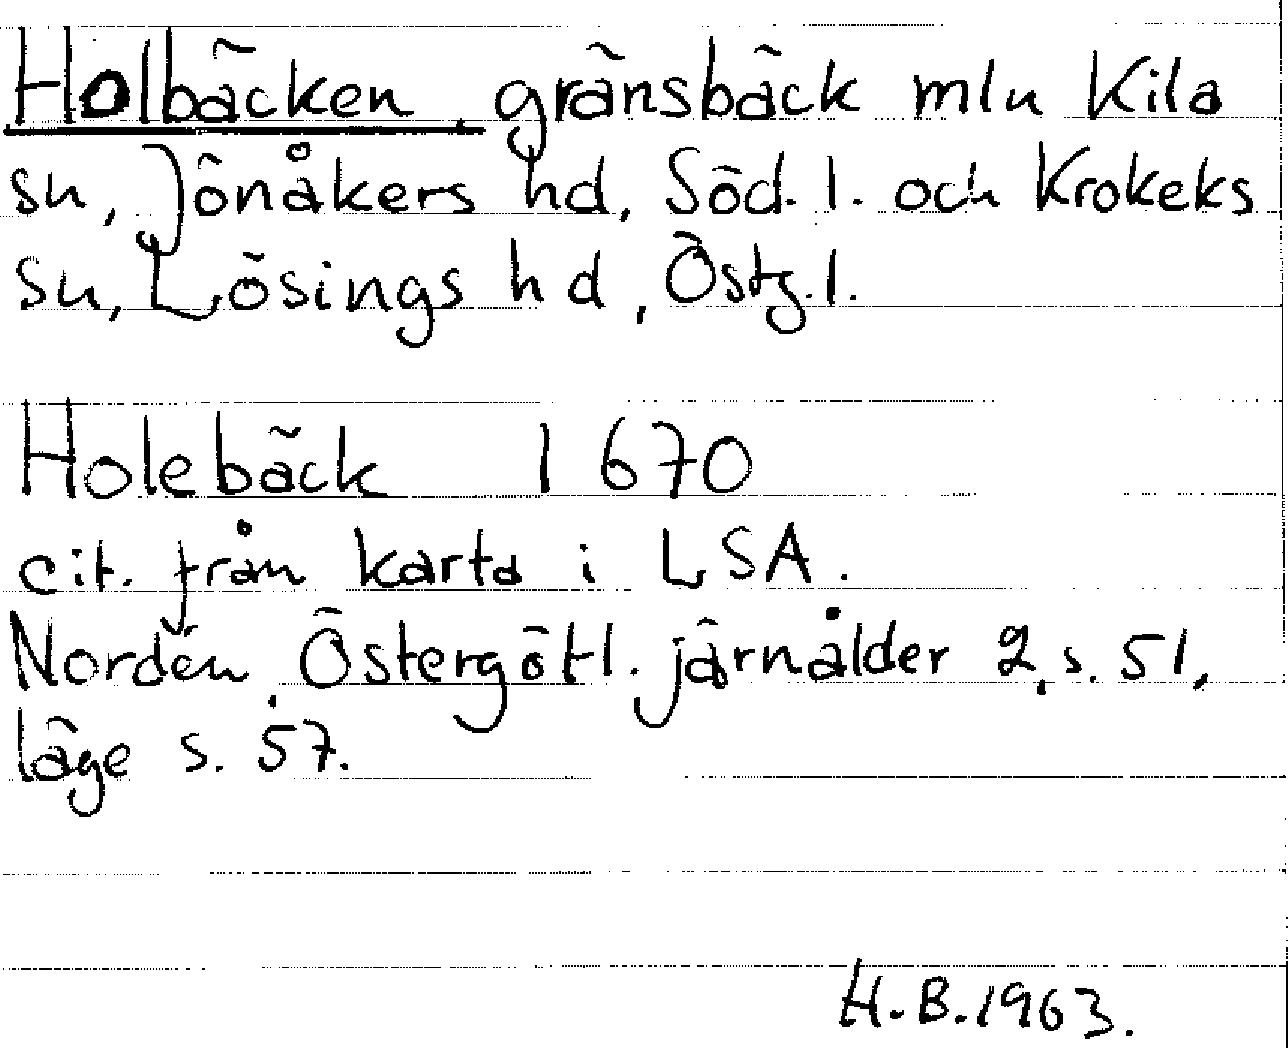 Holbäcken, gränsbäck mln Kila
sn, Jönåkers hd, Söd. l. och Krokeks
sn, Lösings hd, Östg. l.
Holebäck 1670
cit. från karta i LSA.
Nordén, Östergötl. järnålder 2, s. 51,
läge s. 57.
H. B. 1963.